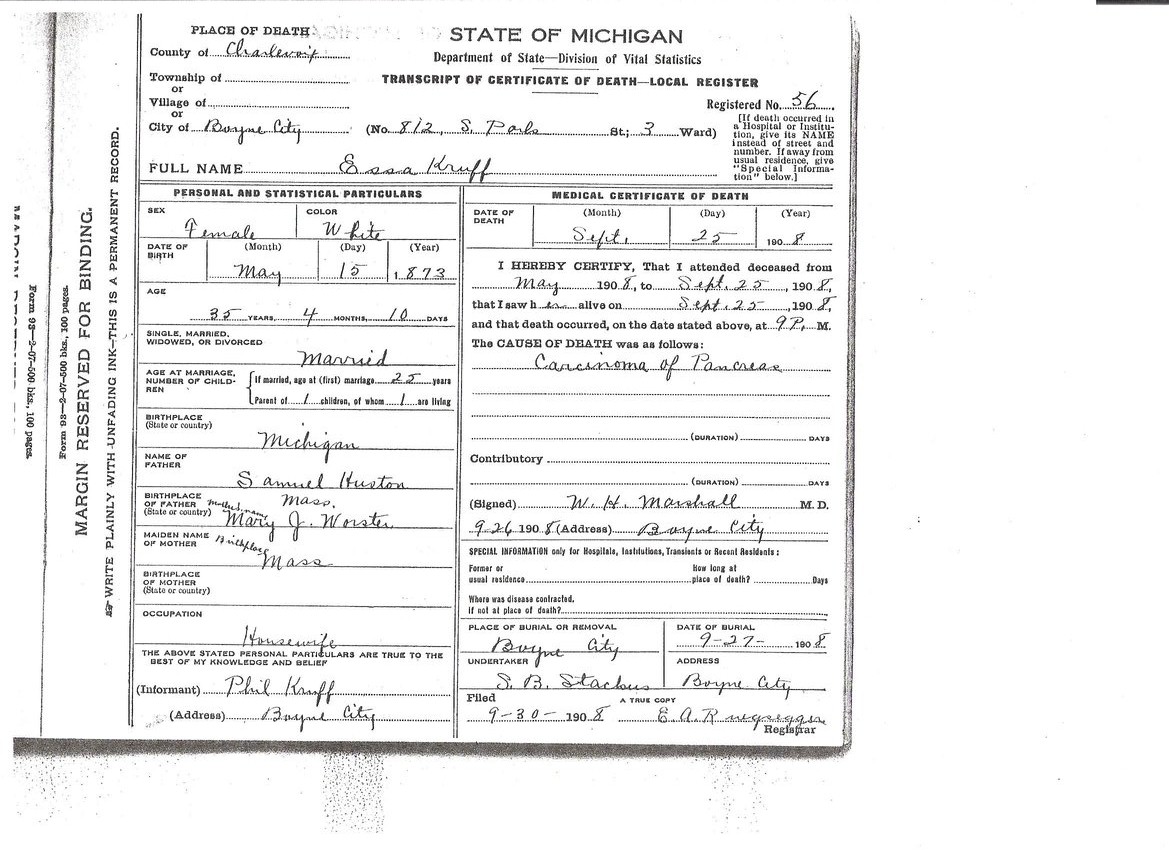 PLACE OF DEATH
County of Charlevoix
Township of
or
Village of
or
City of Boyne City (No. 812, S. Park St.; 3 Ward)
STATE OF MICHIGAN
Department of State—Division of Vital Statistics
TRANSCRIPT OF CERTIFICATE OF DEATH—LOCAL REGISTER
Registered No. 56
[If death occurred in
a Hospital or Institu-
tion, give its NAME
instead of street and
number. If away from
usual residence, give
"Special Informa-
tion" below.]
FULL NAME Essa Kruff
PERSONAL AND STATISTICAL PARTICULARS
SEX Female
COLOR White
DATE OF BIRTH (Month) (Day) (Year)
May 15 1873
AGE
35 YEARS, 4 MONTHS, 10 DAYS
SINGLE, MARRIED,
WIDOWED, OR DIVORCED
Married
AGE AT MARRIAGE,
NUMBER OF CHILD-
REN
If married, age at (first) marriage 25 years
Parent of 1 children, of whom 1 are living
BIRTHPLACE
(State or country)
Michigan
NAME OF
FATHER
Samuel Huston
BIRTHPLACE
OF FATHER
(State or country)
Mass.
Mother's name
Mary J. Worster
MAIDEN NAME
OF MOTHER
Birthplace
Mass
BIRTHPLACE
OF MOTHER
(State or country)
OCCUPATION
Housewife
THE ABOVE STATED PERSONAL PARTICULARS ARE TRUE TO THE
BEST OF MY KNOWLEDGE AND BELIEF
(Informant) Phil Kruff
(Address) Boyne City
MEDICAL CERTIFICATE OF DEATH
DATE OF DEATH (Month) (Day) (Year)
Sept. 25 1908
I HEREBY CERTIFY, That I attended deceased from
May 1908, to Sept. 25, 1908,
that I saw her alive on Sept. 25, 1908,
and that death occurred, on the date stated above, at 9 P. M.
The CAUSE OF DEATH was as follows:
Carcinoma of Pancreas
(DURATION) DAYS
Contributory
(DURATION) DAYS
(Signed) W. H. Marshall M. D.
9-26 1908 (Address) Boyne City
SPECIAL INFORMATION only for Hospitals, Institutions, Transients or Recent Residents:
Former or
usual residence
How long at
place of death? Days
Where was disease contracted,
if not at place of death?
PLACE OF BURIAL OR REMOVAL
Boyne City
DATE OF BURIAL
9-27- 1908
UNDERTAKER
S. B. Stackus
ADDRESS
Boyne City
Filed
9-30- 1908
A TRUE COPY
E. A.
Registrar
MARGIN RESERVED FOR BINDING.
WRITE PLAINLY WITH UNFADING INK—THIS IS A PERMANENT RECORD.
Form 93—2-07-500 bks., 100 pages.
Form 93—2-07-500 bks., 100 pages.